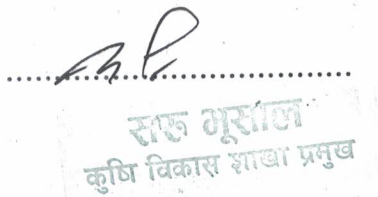 सरू भूसाल
कृषि विकास शाखा प्रमुख